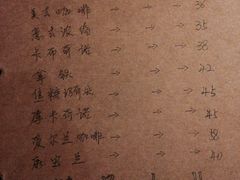 美式咖啡 → → 30
意式浓缩 → → 35
卡布奇诺 → → 38
拿铁 → → 42
焦糖玛奇朵 → → 45
摩卡奇诺 → → 45
爱尔兰咖啡 → → 58
→ → 40